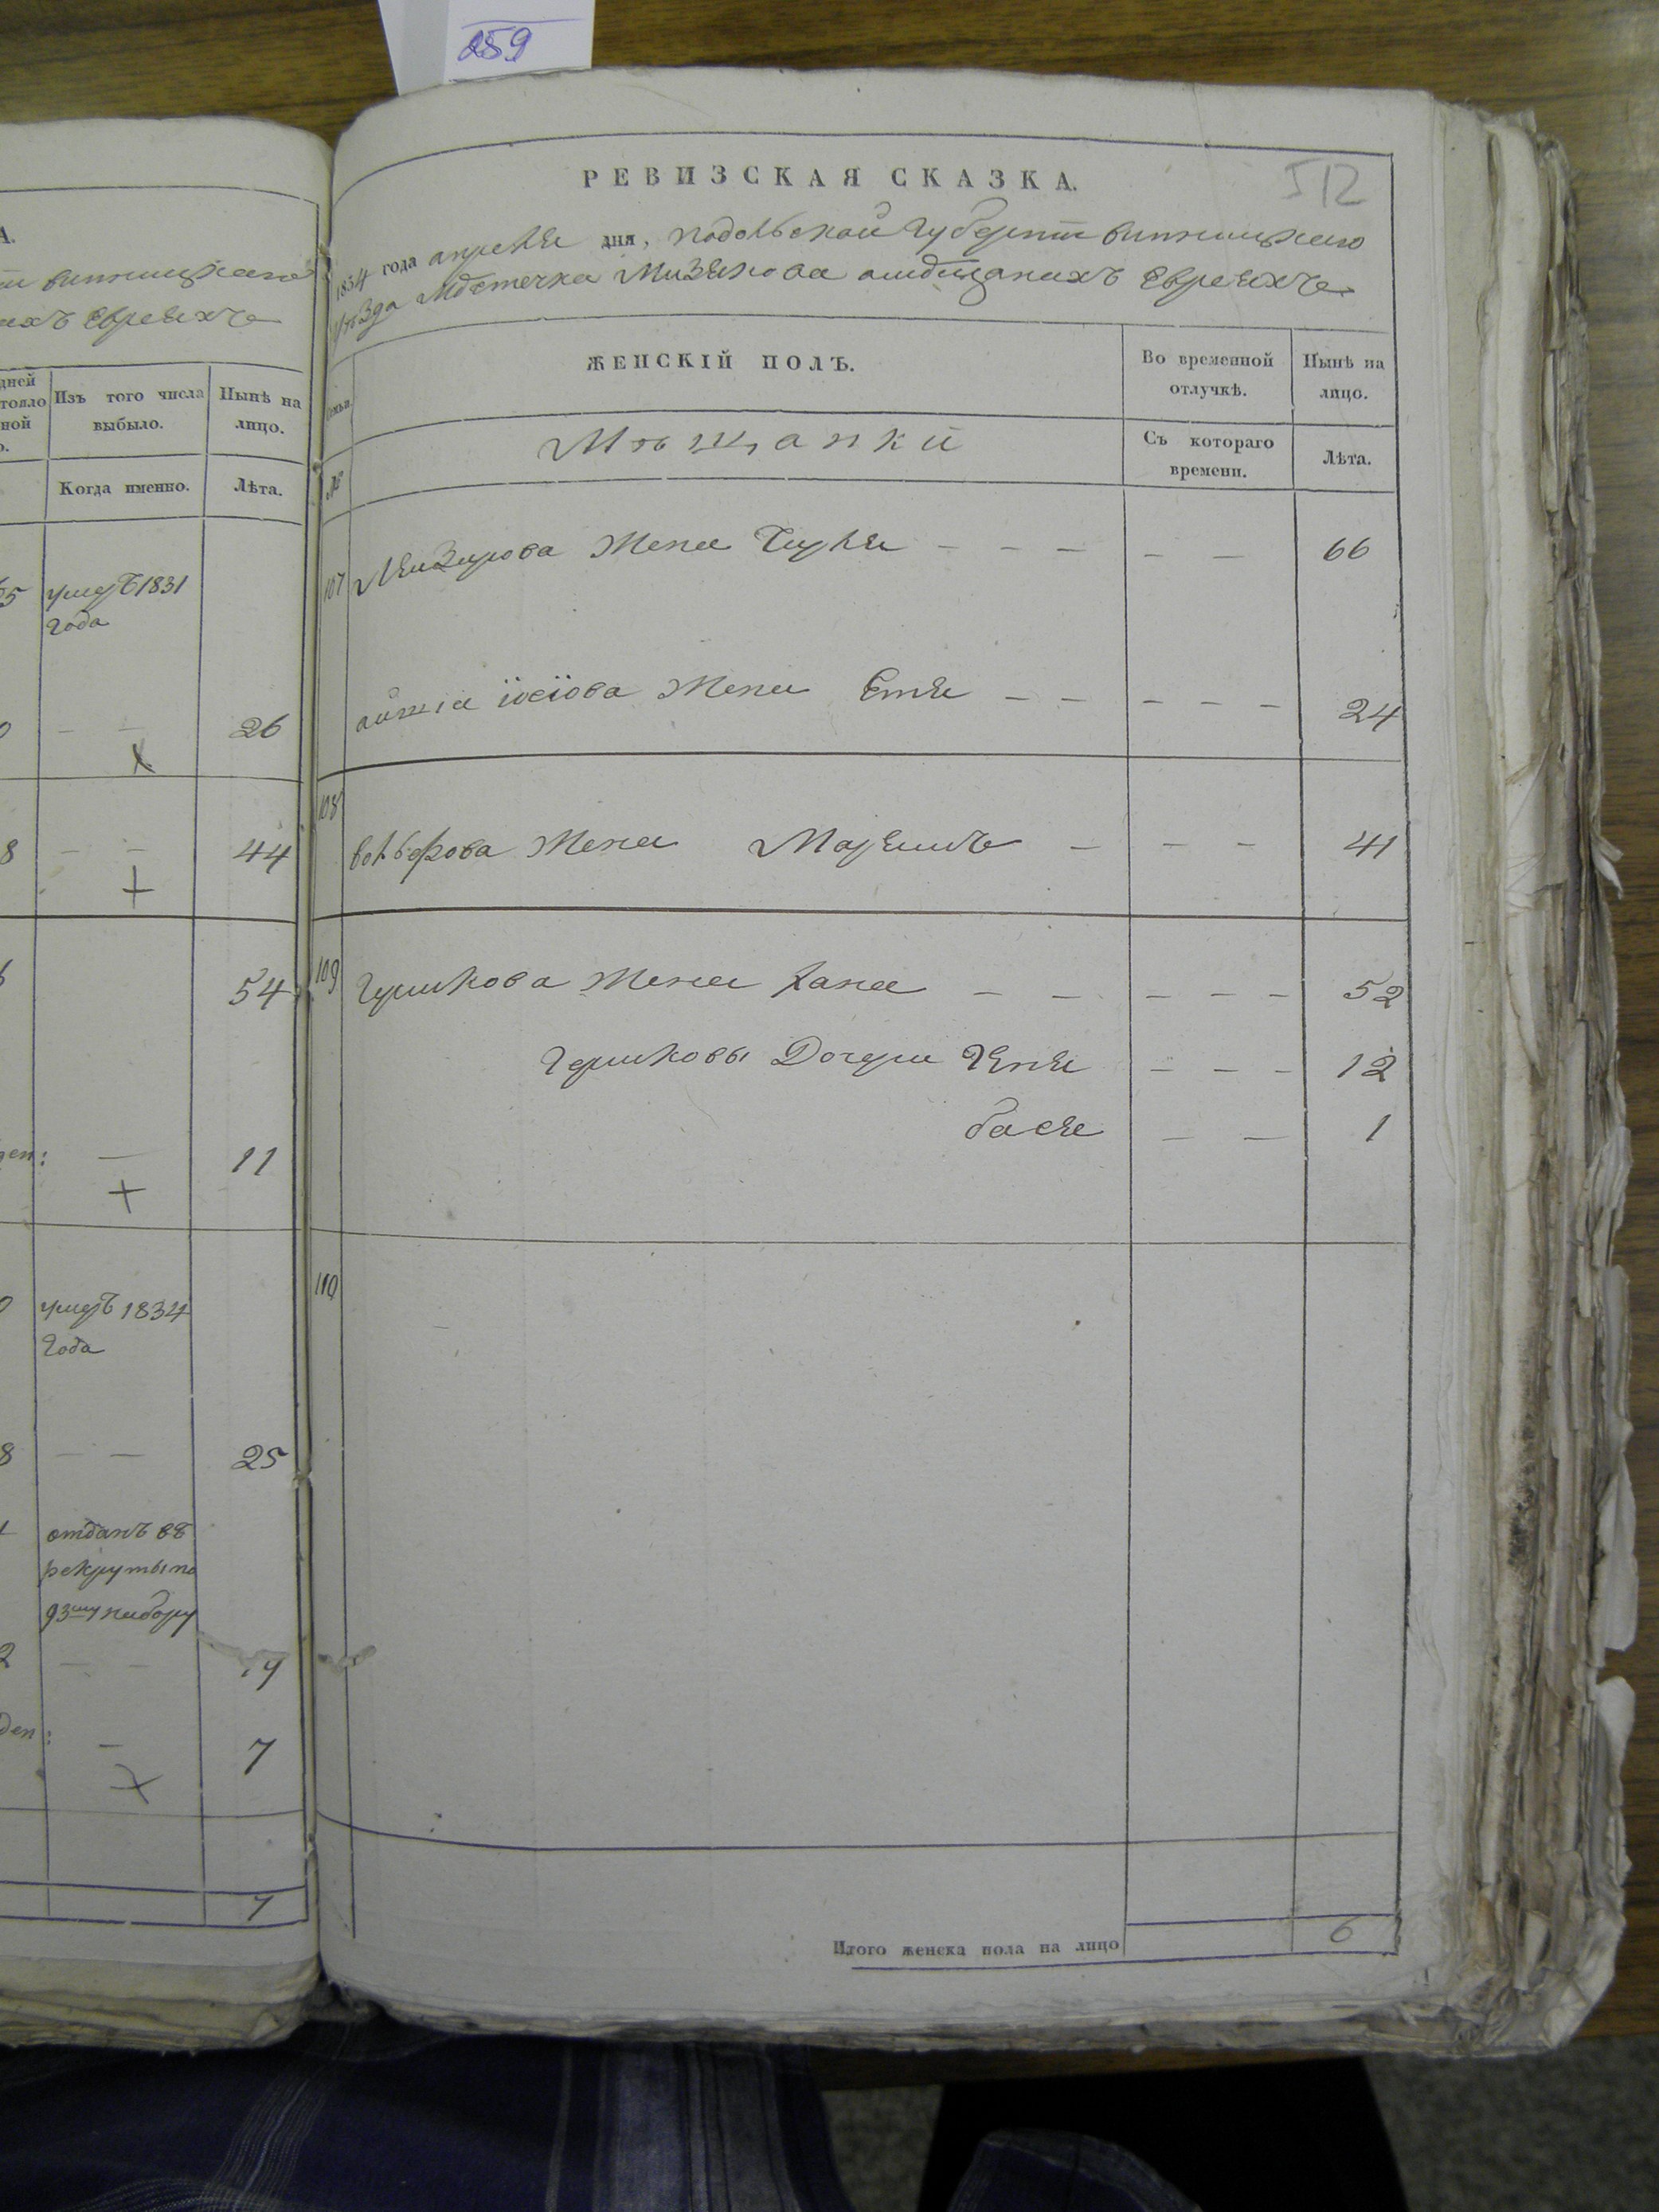 259
512
А.
винницкаго
евреяхъ
Изъ того числа выбыло.
Нынѣ на лицо.
Когда именно.
Лѣта.
умеръ 1831
года
26
44
54
11
умеръ 1834
года
25
отданъ въ
рекруты по
93му набору
19
7
7
РЕВИЗСКАЯ СКАЗКА.
1834 года апреля дня, подольской губерніи винницкаго
уѣзда мѣстечка Мизякова омѣщанахъ евреяхъ
Семьи
ЖЕНСКІЙ ПОЛЪ.
Во временной отлучкѣ.
Нынѣ на лицо.
№
Мѣщанки
Съ котораго времени.
Лѣта.
107 Лейзерова жена 66
жена Етя 24
108
вольфова жена Маріямъ 41
109 Гершкова жена Хана 52
Гершковы Дочери Геня 12
бася 1
110
Итого женска пола на лицо 6